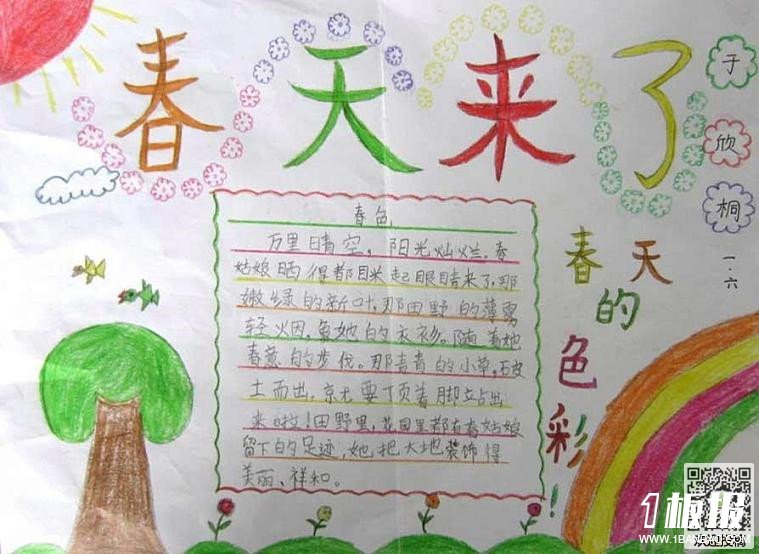 春天来了
于欣桐
一.六
春天的色彩!
春色
万里晴空，阳光灿烂。春
姑娘晒得都目米起眼睛来了，那
嫩绿的新叶，那田野的薄雾
轻烟，
她的衣衫。随着她
春意的步伐。那青青的小草，破
土而出，
要顶着脚立占出
来啦！田野里，花园里都有春姑娘
留下的足迹，她把大地装饰得
美丽、祥和。
1板报
WWW.1BANBAO.COM
欢迎投稿